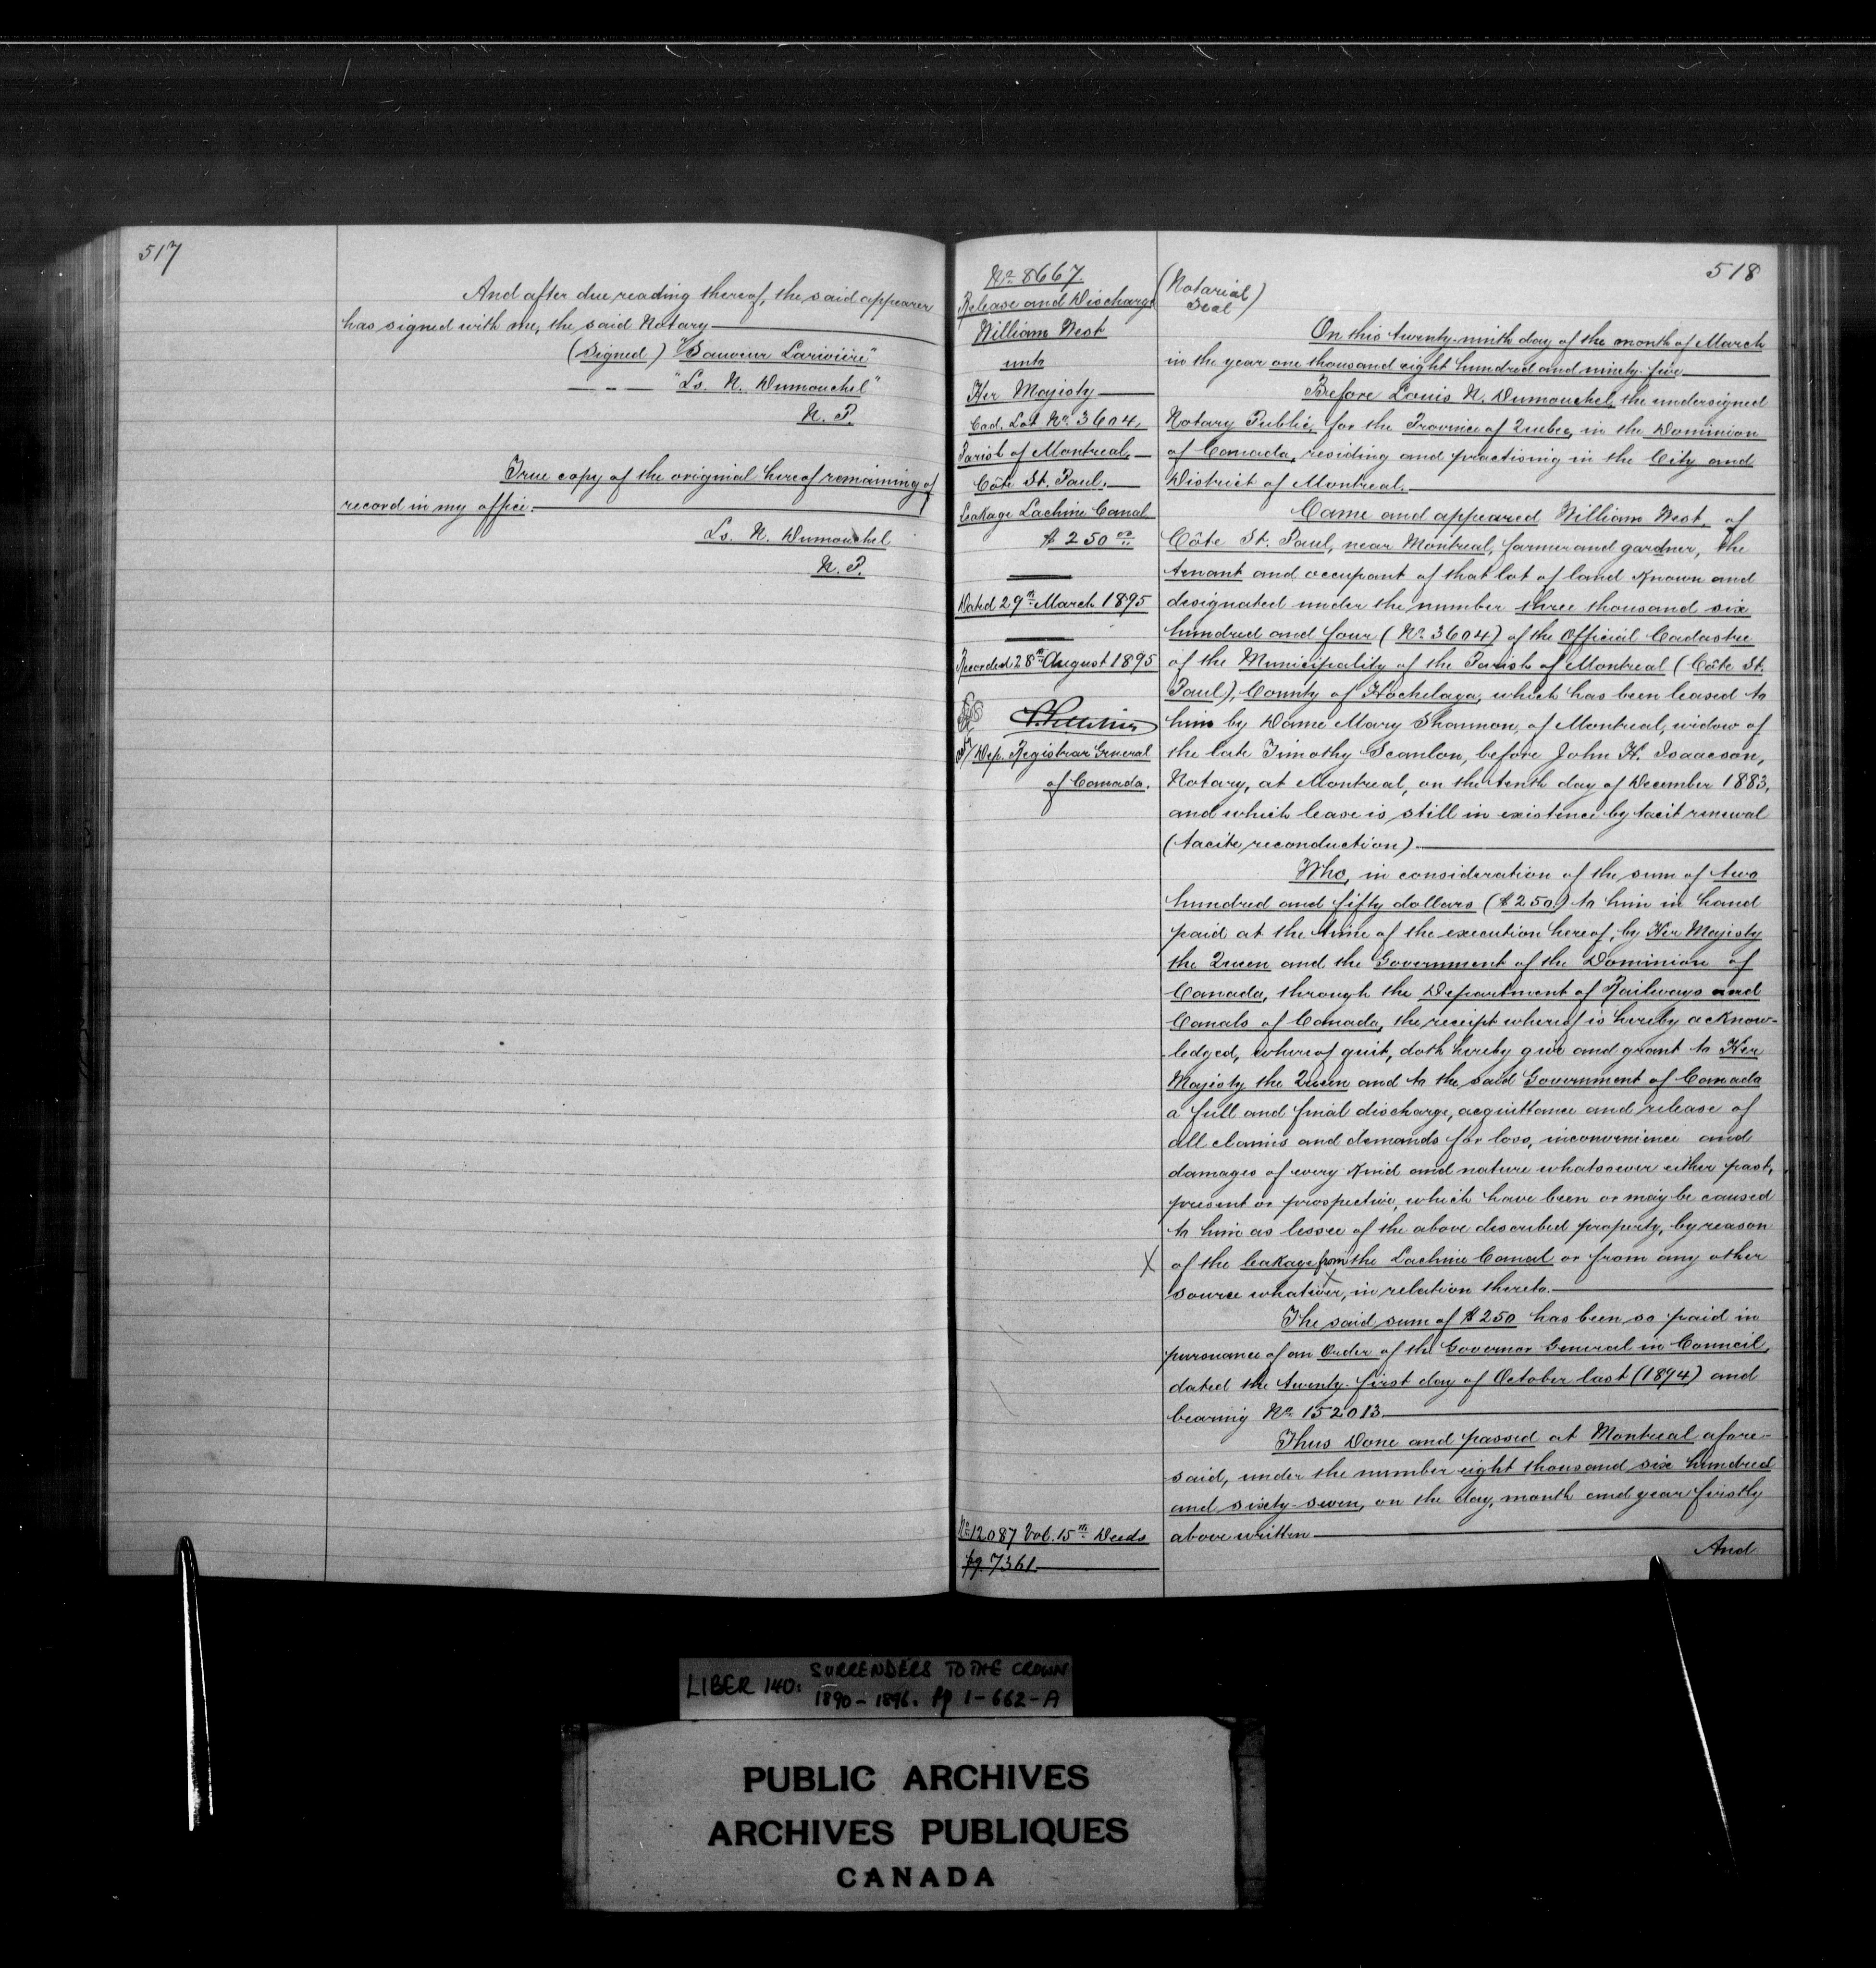 517
And after due reading thereof, the said appearer
has signed with me, the said Notary
(Signed) "Sauveur Larivière"
— — — "Ls. N. Dumouchel"
N. P.
True copy of the original hereof remaining of
record in my office.
Ls. N. Dumouchel
N. P.
No. 8667.
Release and Discharge
William West
unto
Her Majesty
Cad. Lot No. 3604,
Parish of Montreal,
Côte St. Paul.
Leakage Lachine Canal
$250.00
Dated 29th March 1895
Recorded 28th August 1895
Dep. Registrar General
of Canada.
No. 12087 Vol. 15th Deeds
pg. 7361
518
(Notarial
Seal)
On this twenty-ninth day of the month of March
in the year one thousand eight hundred and ninety-five
Before Louis N. Dumouchel, the undersigned
Notary Public, for the Province of Quebec, in the Dominion
of Canada, residing and practising in the City and
District of Montreal.
Came and appeared William West, of
Côte St. Paul, near Montreal, farmer and gardner, the
tenant and occupant of that lot of land known and
designated under the number three thousand six
hundred and four (No. 3604) of the Official Cadastre
of the Municipality of the Parish of Montreal (Côte St.
Paul), County of Hochelaga, which has been leased to
him by Dame Mary Shannon, of Montreal, widow of
the late Timothy Scanlon, before John H. Isaacson,
Notary, at Montreal, on the tenth day of December 1883,
and which lease is still in existence by tacit renewal
(tacite reconduction).
Who, in consideration of the sum of two
hundred and fifty dollars ($250.) to him in hand
paid at the time of the execution hereof, by Her Majesty
the Queen and the Government of the Dominion of
Canada, through the Department of Railways and
Canals of Canada, the receipt whereof is hereby acknow-
ledged, whereof quit, doth hereby give and grant to Her
Majesty the Queen and to the said Government of Canada
a full and final discharge, acquittance and release of
all claims and demands for loss, inconvenience and
damages of every kind and nature whatsoever either past,
present or prospective, which have been or may be caused
to him as lessee of the above described property, by reason
X of the leakage from the Lachine Canal or from any other
source whatever, in relation thereto.
The said sum of $250 has been so paid in
pursuance of an Order of the Governor General in Council,
dated the twenty-first day of October last (1894) and
bearing No. 152013.
Thus Done and passed at Montreal afore-
said, under the number eight thousand six hundred
and sixty-seven, on the day, month and year firstly
above written
And
LIBER 140: SURRENDERS TO THE CROWN
1890-1896. pp 1-662-A
PUBLIC ARCHIVES
ARCHIVES PUBLIQUES
CANADA